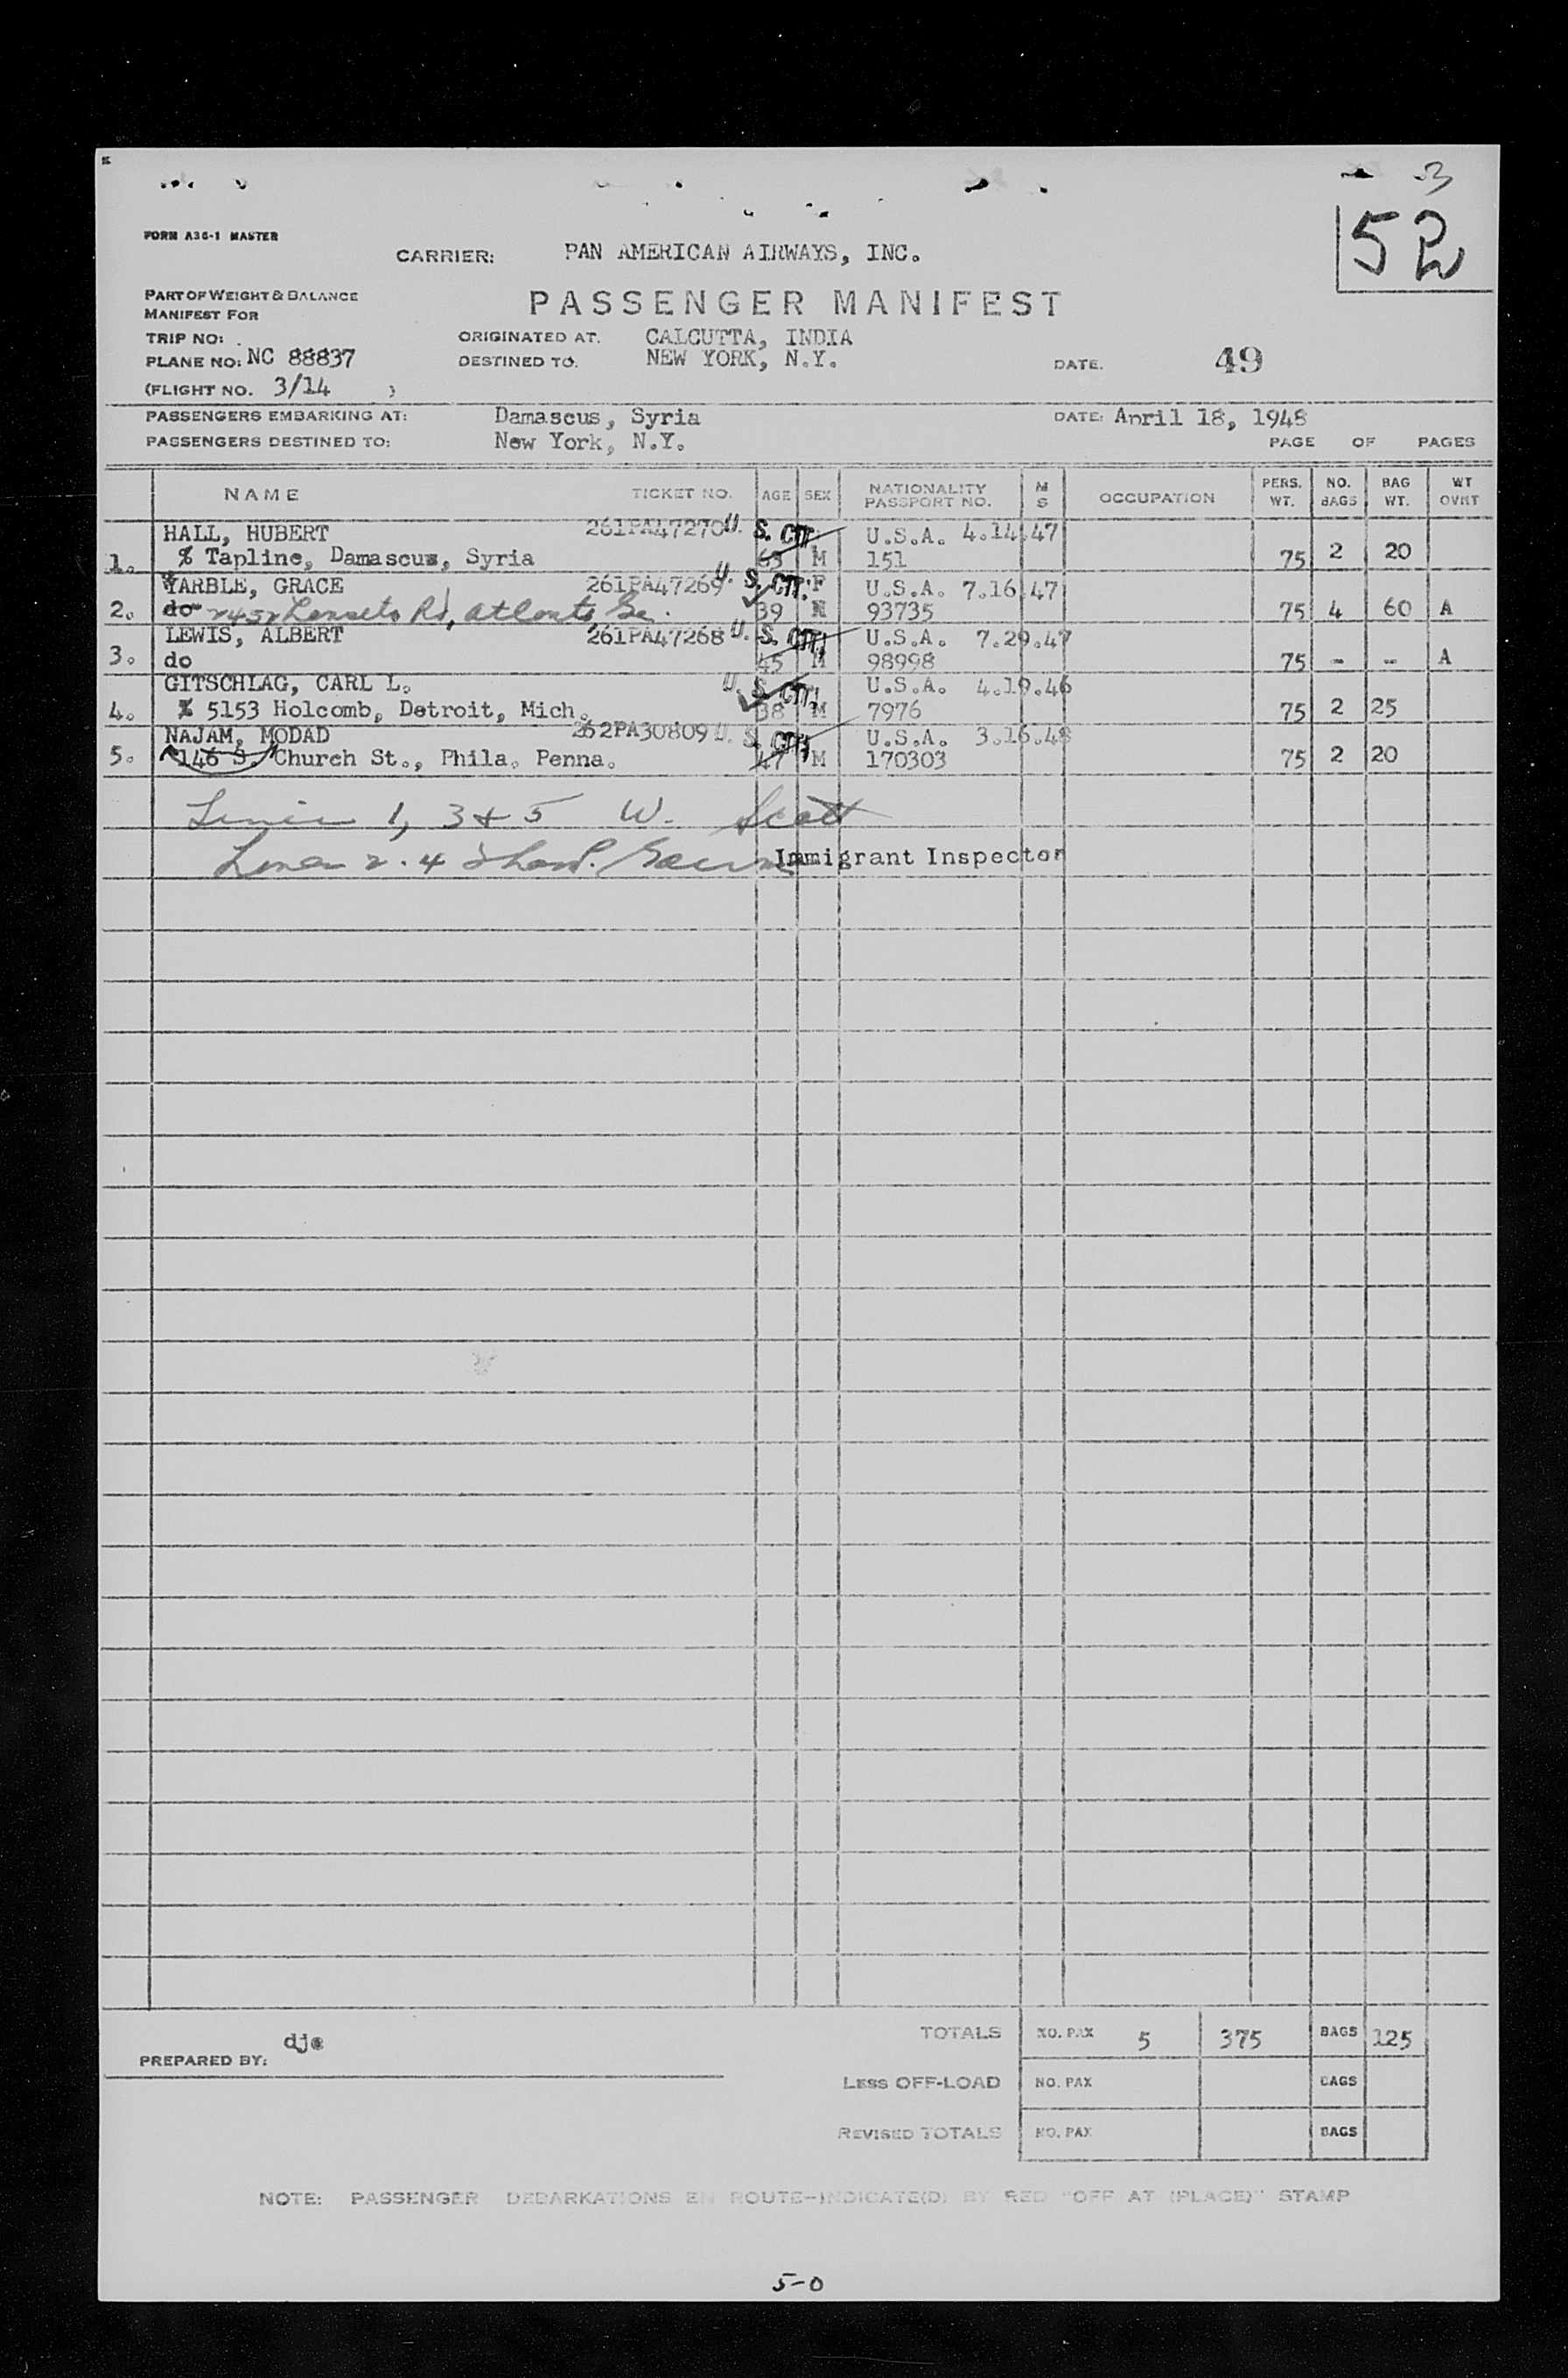 3
52
FORM A36-1 MASTER
CARRIER: PAN AMERICAN AIRWAYS, INC.
PART OF WEIGHT & BALANCE
MANIFEST FOR
PASSENGER MANIFEST
TRIP NO: ORIGINATED AT. CALCUTTA, INDIA
PLANE NO: NC 88837 DESTINED TO. NEW YORK, N.Y. DATE. 49
(FLIGHT NO. 3/14 )
PASSENGERS EMBARKING AT: Damascus, Syria DATE: April 18, 1948
PASSENGERS DESTINED TO: New York, N.Y. PAGE OF PAGES
NAME TICKET NO. AGE SEX NATIONALITY PASSPORT NO. M S OCCUPATION PERS. WT. NO. BAGS BAG WT. WT OVNT
HALL, HUBERT 261PA47270 U. S. CIT. U.S.A. 4.14.47
1. % Tapline, Damascus, Syria 63 M 151 75 2 20
YARBLE, GRACE 261PA47269 U. S. CIT. F U.S.A. 7.16.47
2. do Rd, Atlanta, Ga. 39 93735 75 4 60 A
LEWIS, ALBERT 261PA47268 U. S. CIT. U.S.A. 7.29.47
3. do 45 M 98998 75 - - A
GITSCHLAG, CARL L. U. S. CIT. U.S.A. 4.19.46
4. % 5153 Holcomb, Detroit, Mich. 38 M 7976 75 2 25
NAJAM, MODAD 262PA30809 U. S. CIT. U.S.A. 3.16.48
5. 146 S. Church St., Phila. Penna. 47 M 170303 75 2 20
Lines 1, 3 & 5 W. Scott
Lines 2. 4 Immigrant Inspector
TOTALS NO. PAX 5 375 BAGS 125
dje
PREPARED BY:
LESS OFF-LOAD NO. PAX BAGS
REVISED TOTALS NO. PAX BAGS
NOTE: PASSENGER DEBARKATIONS EN ROUTE-INDICATE(D) BY RED "OFF AT (PLACE)" STAMP
5-0